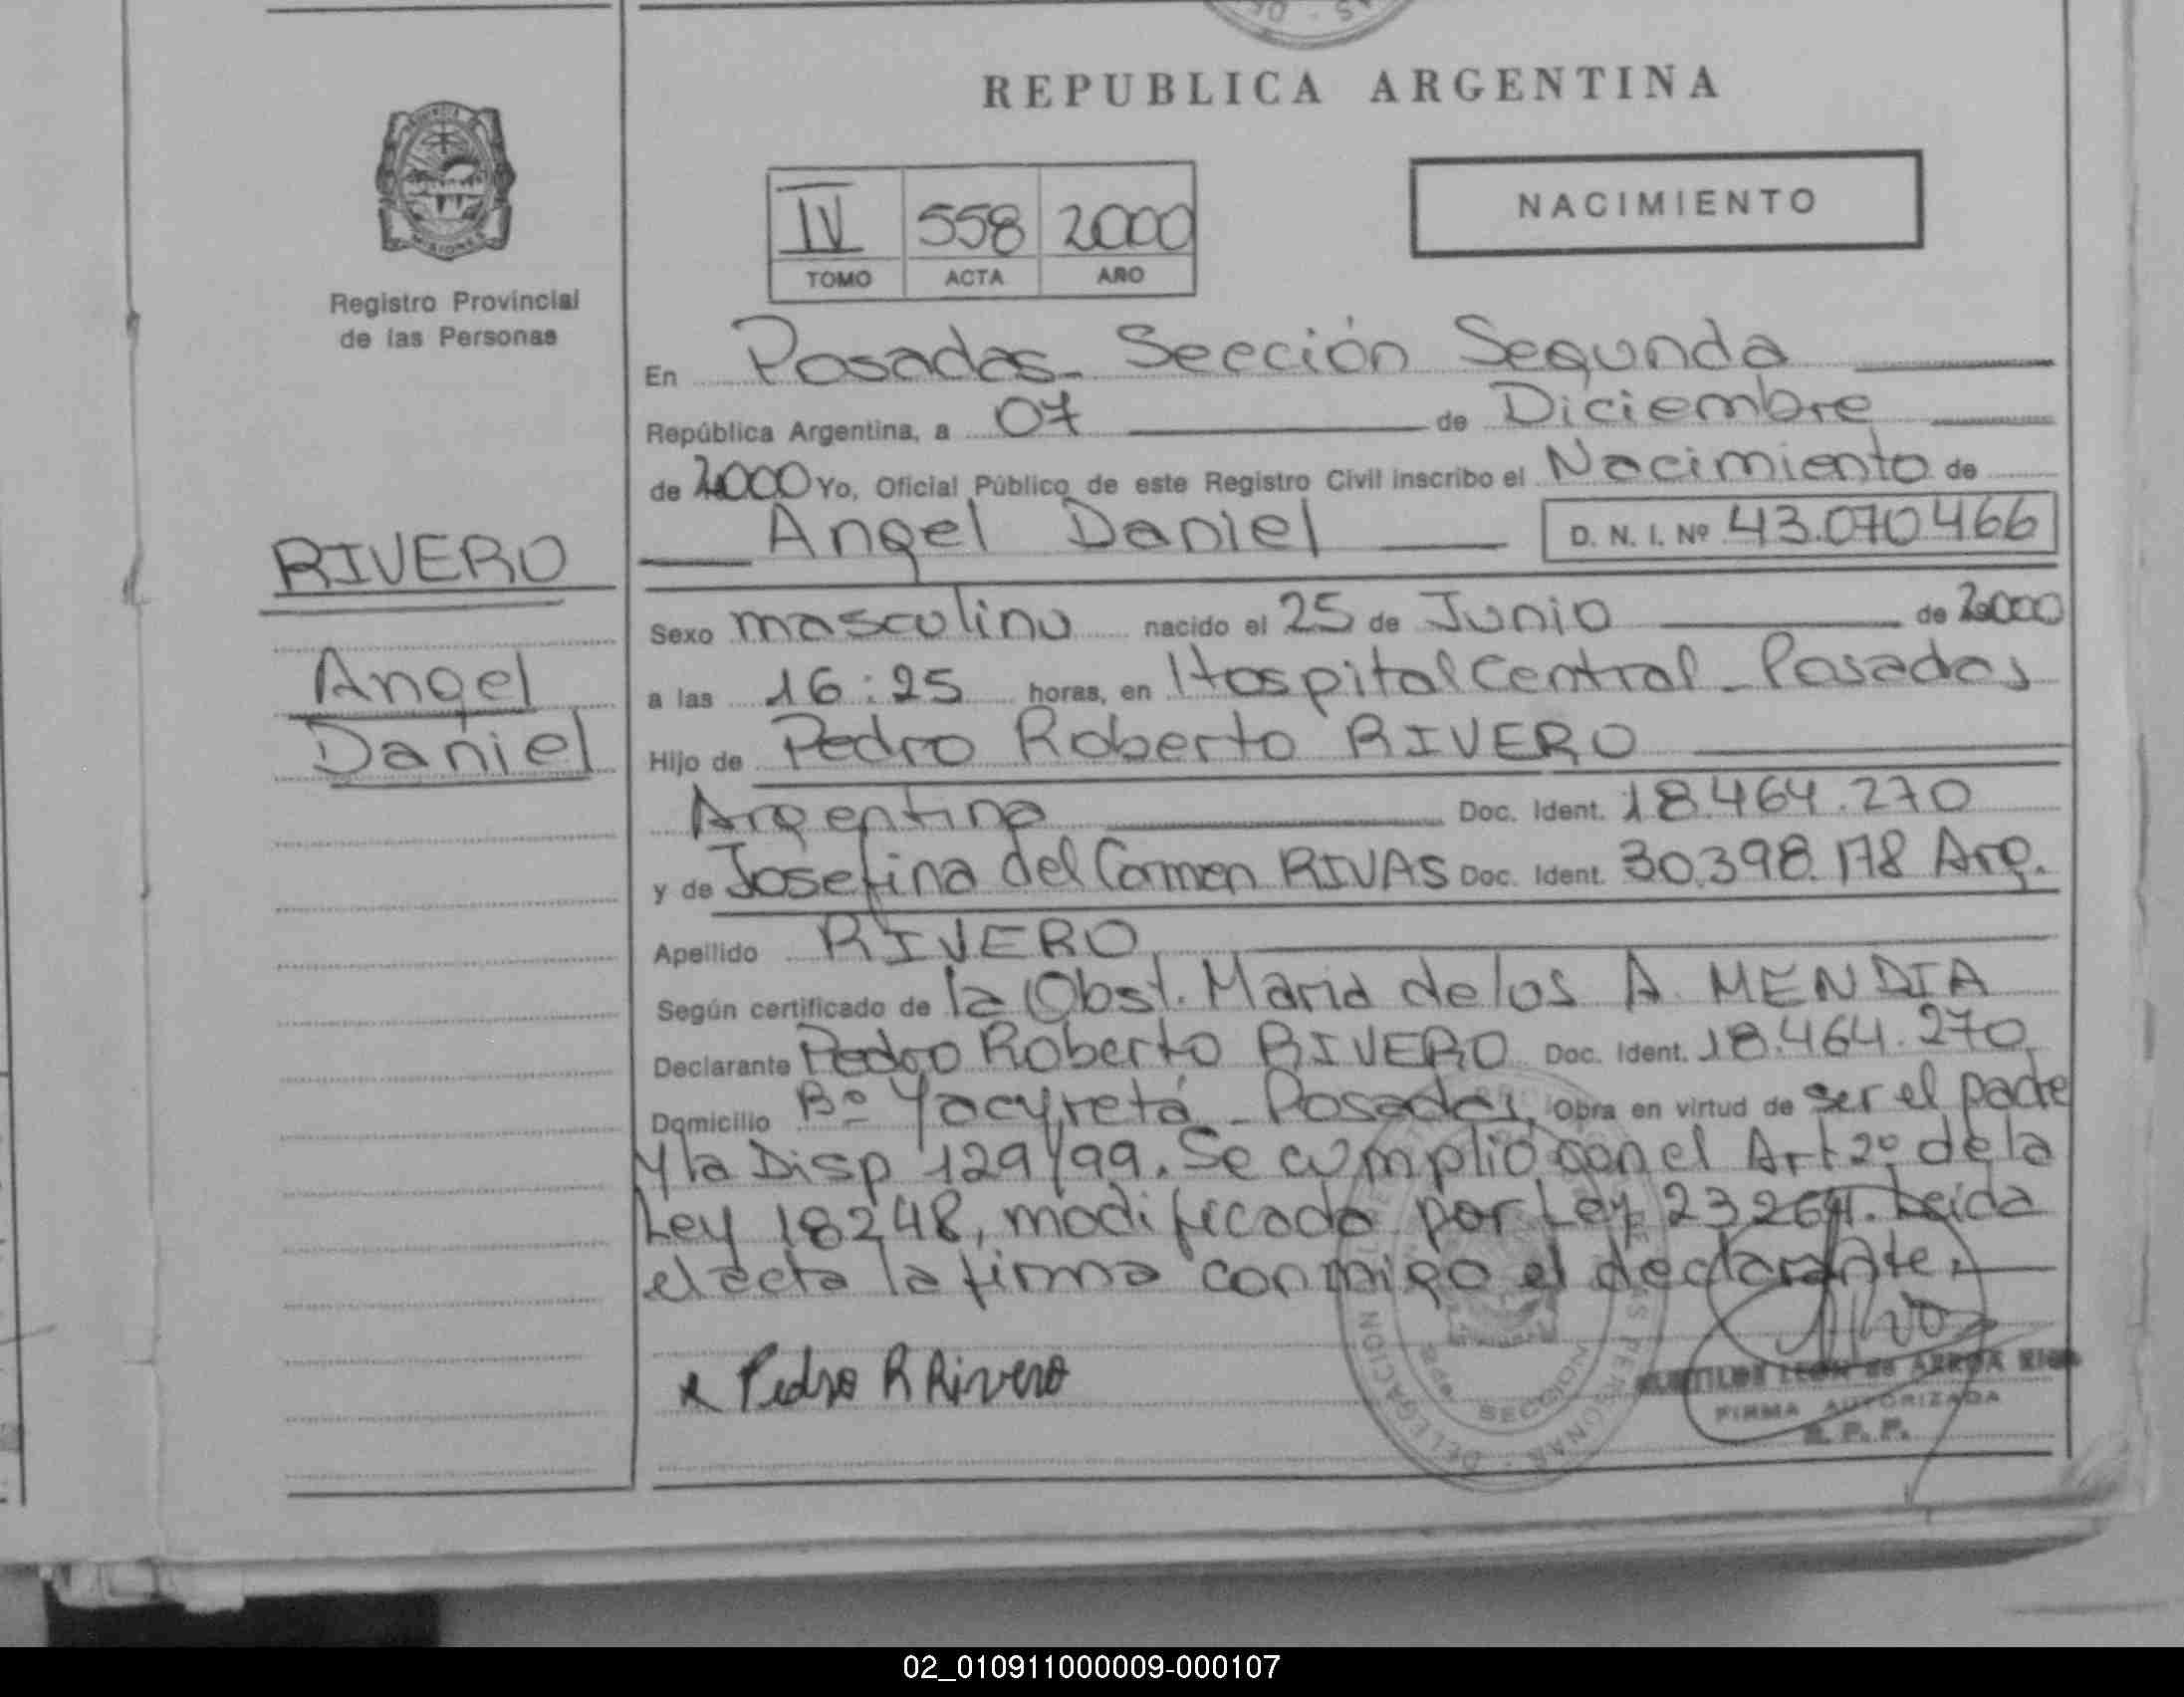 REPUBLICA ARGENTINA
Registro Provincial
de las Personas
RIVERO
Angel
Daniel
IV 558 2000
TOMO ACTA AÑO
NACIMIENTO
En Posadas - Sección Segunda
República Argentina, a 07 de Diciembre
de 2000 Yo, Oficial Público de este Registro Civil inscribo el Nacimiento de
Angel Daniel D. N. I. Nº 43.070.466
Sexo masculino nacido el 25 de Junio de 2000
a las 16:25 horas, en Hospital Central - Posadas
Hijo de Pedro Roberto RIVERO
Argentina Doc. Ident. 18.464.270
y de Josefina del Carmen RIVAS Doc. Ident. 30.398.178 Arg.
Apellido RIVERO
Según certificado de la Obst. Maria de los A. MENDIA
Declarante Pedro Roberto RIVERO Doc. Ident. 18.464.270
Domicilio Bº Yacyretá - Posadas, Obra en virtud de ser el padre
y la Disp 129/99. Se cumplió con el Art 2º de la
Ley 18248, modificado por Ley 23264. Leida
el acta la firma conmigo el declarante.
x Pedro R Rivero
FIRMA AUTORIZADA
R. P. P.
DELEGACION
SECCION
02_010911000009-000107